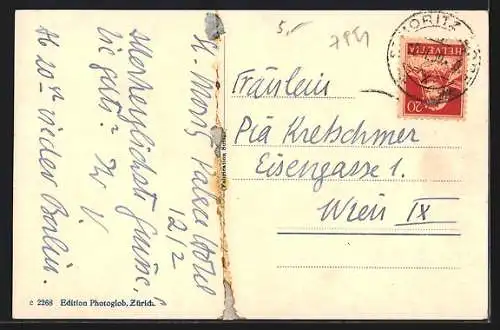 5,-
7951
St. Moritz Palace Hotel
12/2
Allerherzlichste Grüsse.
Wie gehts? Ihr V.
Ab 20ten wieder Berlin.
ST. MORITZ
HELVETIA
20
Fräulein
Pia Kretschmer
Eisengasse 1.
Wien IX
c 2268 Edition Photoglob, Zürich.